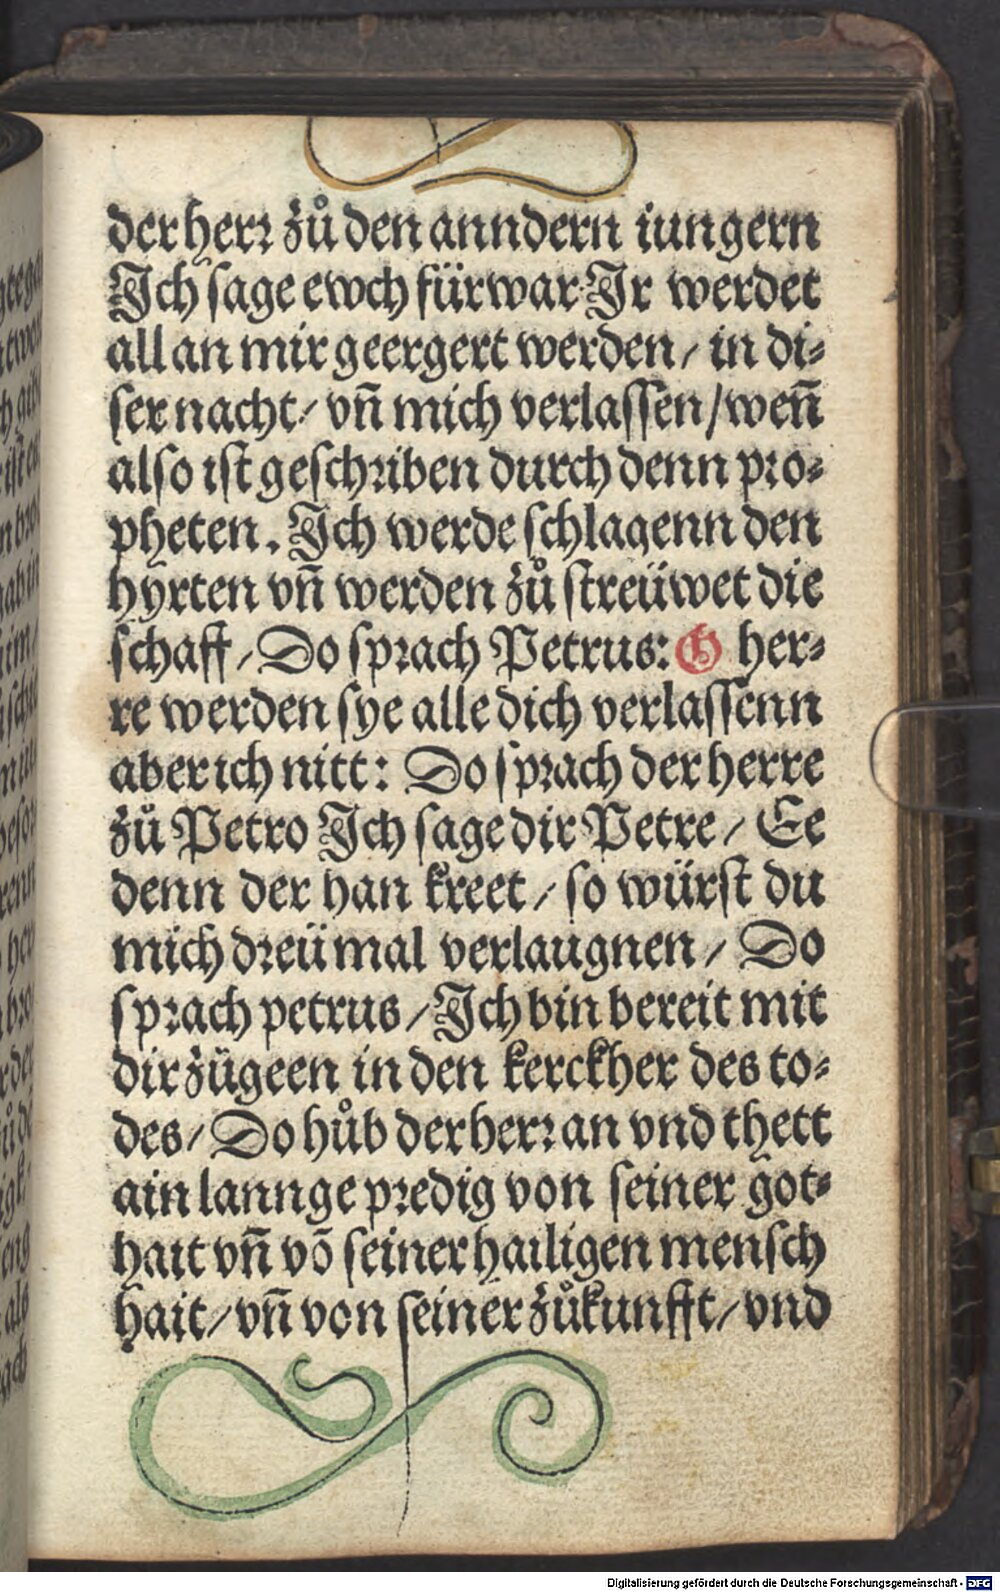 der herr zů den anndern iungern
Ich sage ewch fürwar Ir werdet
all an mir geergert werden / in di⸗
ser nacht / vn̄ mich verlassen / wen̄
also ist geschriben durch denn pro⸗
pheten. Ich werde schlagenn den
hyrten vn̄ werden zů streüwet die
schaff / Do sprach Petrus: O her⸗
re werden sye alle dich verlassenn
aber ich nitt: Do sprach der herre
zů Petro Ich sage dir Petre / Ee
denn der han kreet / so würst du
mich dreü mal verlaugnen / Do
sprach petrus / Ich bin bereit mit
dir zügeen in den kerckher des to⸗
des / Do hůb der herr an vnd thett
ain lannge predig von seiner got⸗
hait vn̄ vō seiner hailigen mensch
hait / vn̄ von seiner zůkunfft / vnd
Digitalisierung gefördert durch die Deutsche Forschungsgemeinschaft - DFG